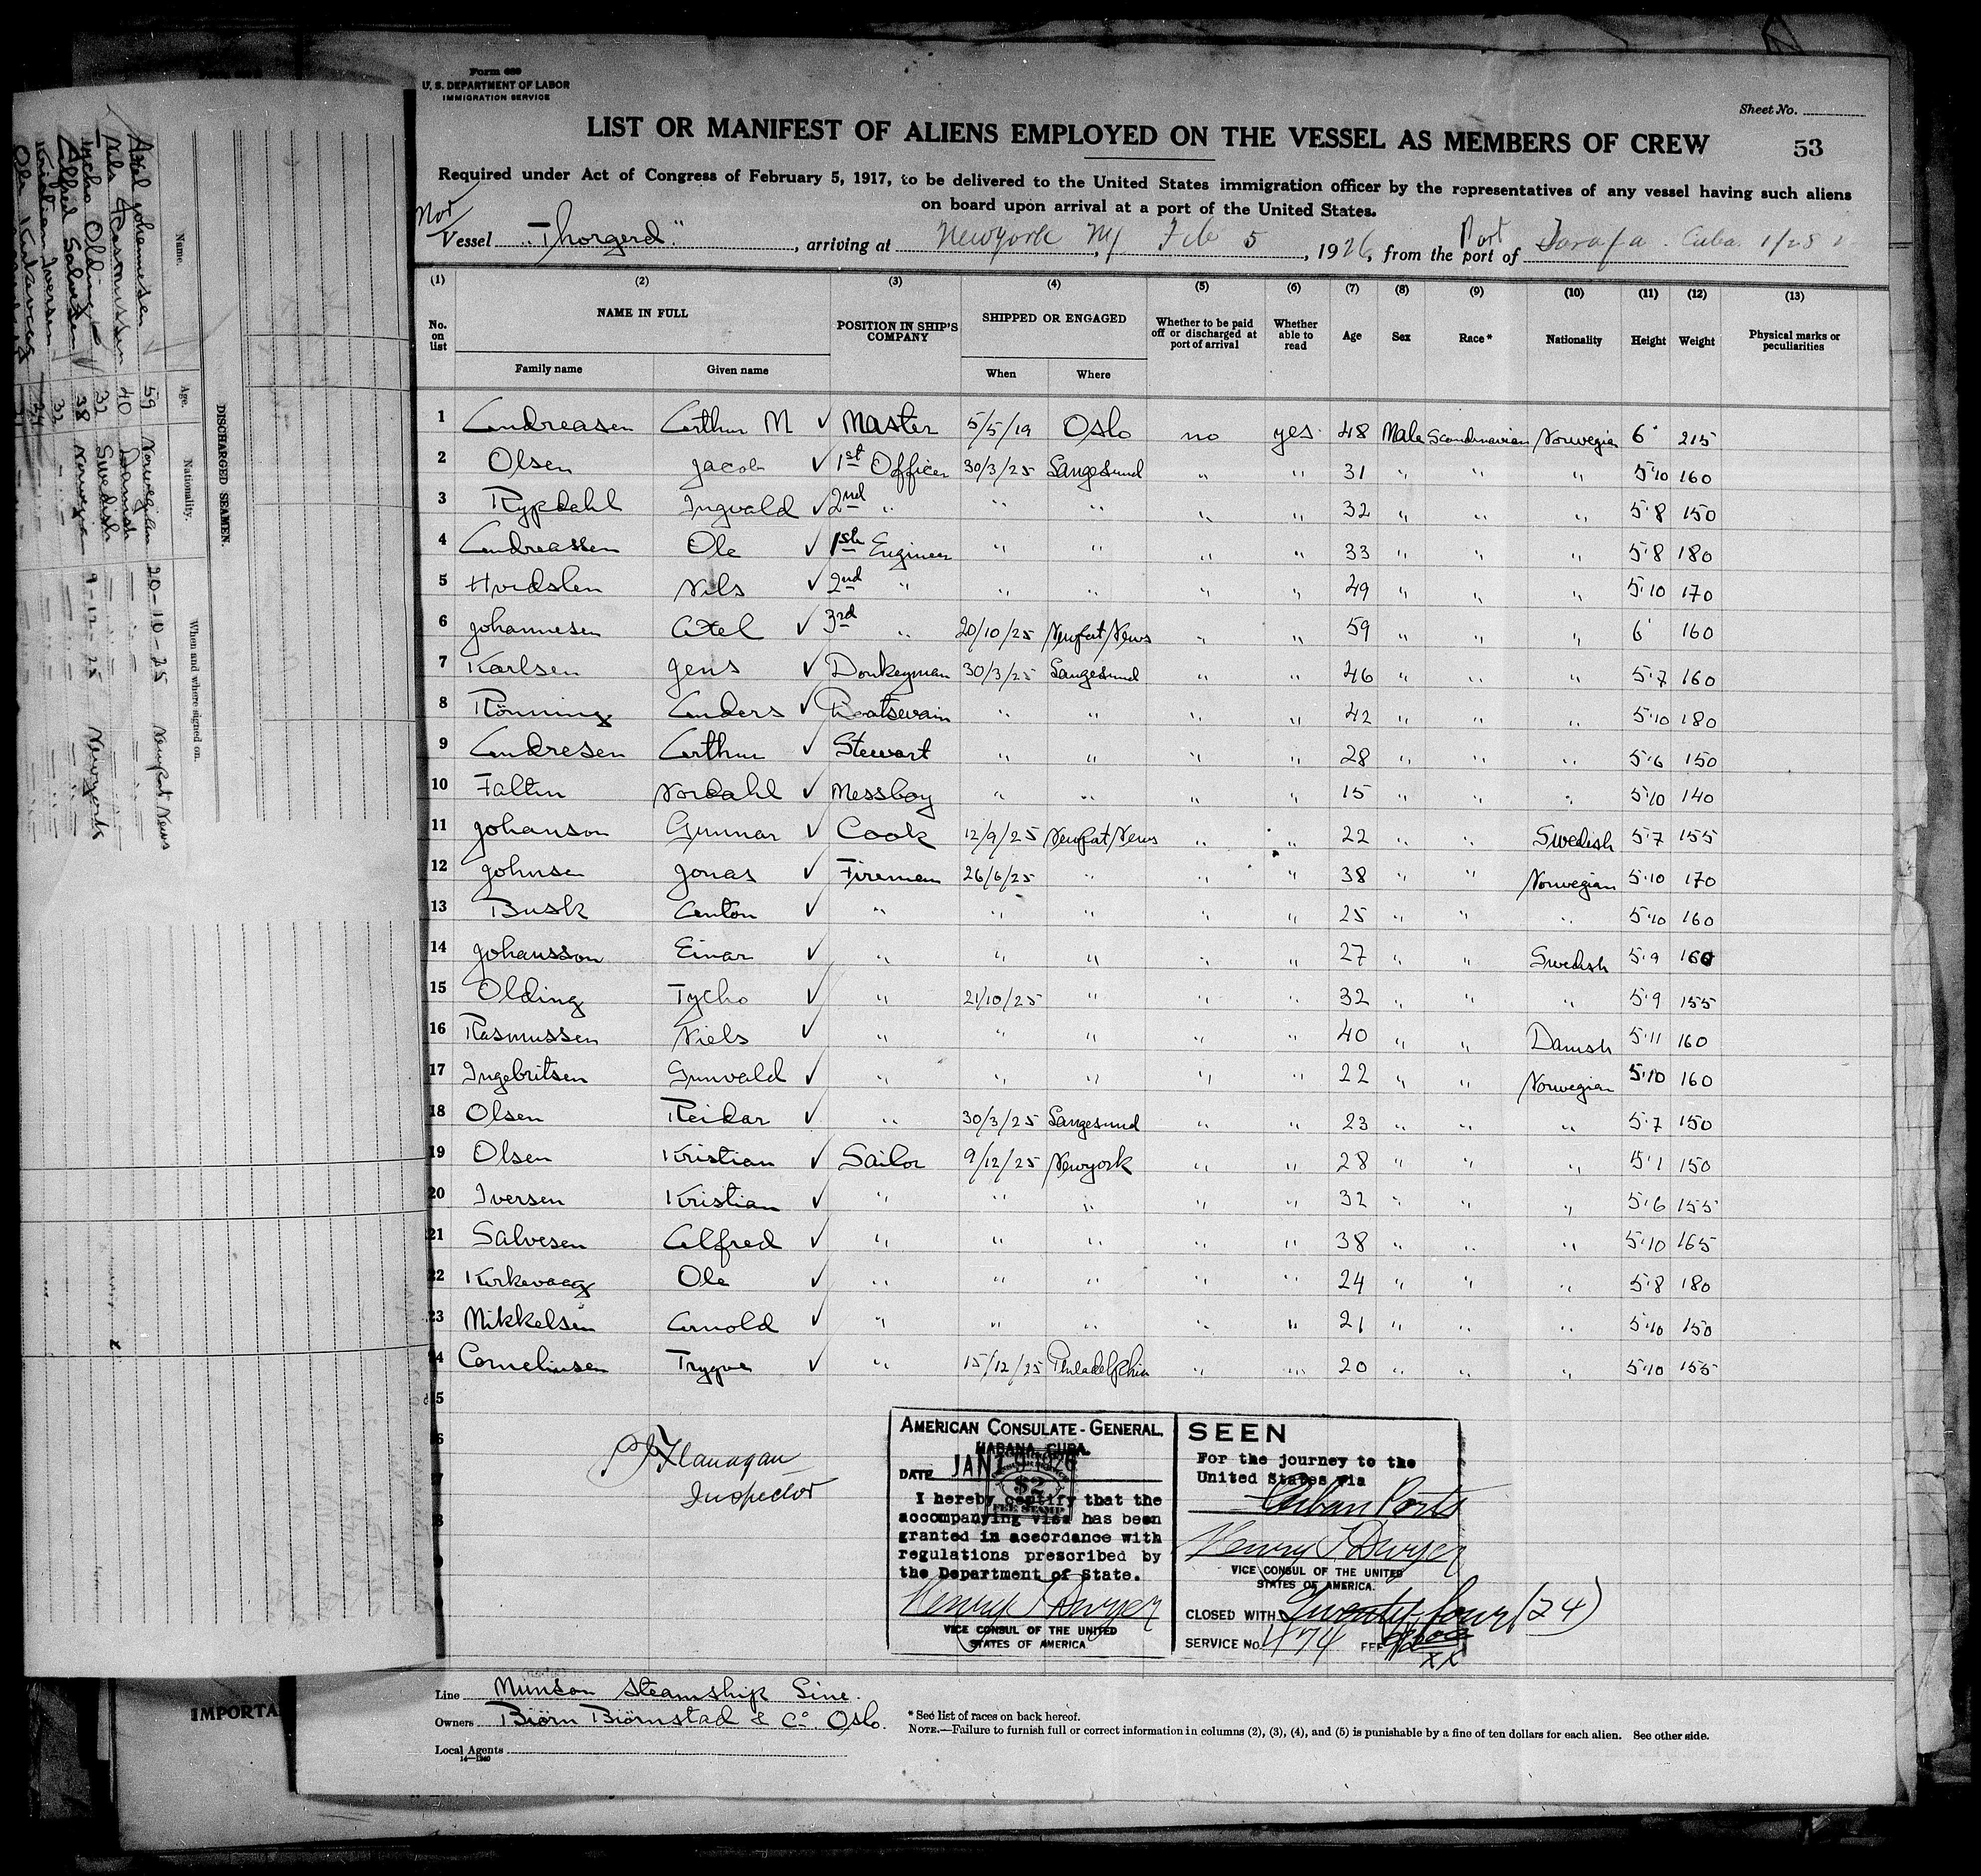 Form 689
U. S. DEPARTMENT OF LABOR
IMMIGRATION SERVICE
Sheet No.
LIST OR MANIFEST OF ALIENS EMPLOYED ON THE VESSEL AS MEMBERS OF CREW
53
Required under Act of Congress of February 5, 1917, to be delivered to the United States immigration officer by the representatives of any vessel having such aliens
on board upon arrival at a port of the United States.
Nor
Vessel "Thorgerd", arriving at Newyork, Ny Feb 5, 1926, from the port of Port Tarafa. Cuba 1/28
(1) (2) (3) (4) (5) (6) (7) (8) (9) (10) (11) (12) (13)
No. on list NAME IN FULL POSITION IN SHIP'S COMPANY SHIPPED OR ENGAGED Whether to be paid off or discharged at port of arrival Whether able to read Age Sex Race* Nationality Height Weight Physical marks or peculiarities
Family name Given name When Where
1 Andreasen Arthur M ✓ Master 5/5/19 Oslo no yes 48 Male Scandinavian Norwegia 6' 215
2 Olsen Jacob ✓ 1st Officer 30/3/25 Langesund " " 31 " " " 5'10 160
3 Rypdahl Ingvald ✓ 2nd " " " " " 32 " " " 5'8 150
4 Andreassen Ole ✓ 1st Engineer " " " " 33 " " " 5'8 180
5 Nils ✓ 2nd " " " " " 49 " " " 5'10 170
6 Johannesen Axel ✓ 3rd " 20/10/25 Newport/News " " 59 " " " 6' 160
7 Karlsen Jens ✓ Donkeyman 30/3/25 Langesund " " 46 " " " 5'7 160
8 Rönning Anders ✓ Boatsevain " " " " 42 " " " 5'10 180
9 Andresen Arthur ✓ Stewart " " " " 28 " " " 5'6 150
10 Faltin Nordahl ✓ Messboy " " " " 15 " " " 5'10 140
11 Johanson Gunnar ✓ Cook 12/9/25 Newport/News " " 22 " " Swedish 5'7 155
12 Johnsen Jonas ✓ Fireman 26/6/25 " " " 38 " " Norwegian 5'10 170
13 Busk Anton ✓ " " " " " 25 " " " 5'10 160
14 Johansson Einar ✓ " " " " " 27 " " Swedish 5'9 160
15 Olding Tycho ✓ " 21/10/25 " " " 32 " " " 5'9 155
16 Rasmussen Niels ✓ " " " " " 40 " " Danish 5'11 160
17 Ingebritsen Gunvald ✓ " " " " " 22 " " Norwegian 5'10 160
18 Olsen Reidar ✓ " 30/3/25 Langesund " " 23 " " " 5'7 150
19 Olsen Kristian ✓ Sailor 9/12/25 Newyork " " 28 " " " 5'1 150
20 Iversen Kristian ✓ " " " " " 32 " " " 5'6 155
21 Salvesen Alfred ✓ " " " " " 38 " " " 5'10 165
22 Kirkevaag Ole ✓ " " " " " 24 " " " 5'8 180
23 Mikkelsen Arnold ✓ " " " " " 21 " " " 5'10 150
24 Corneliusen Trygve ✓ " 15/12/25 Philadelphia " " 20 " " " 5'10 155
Flanagan
Inspector
AMERICAN CONSULATE-GENERAL,
HABANA, CUBA.
DATE JAN 1926
$2
FEE STAMP
I hereby certify that the
accompanying visa has been
granted in accordance with
regulations prescribed by
the Department of State.
Henry T Dwyer
VICE CONSUL OF THE UNITED
STATES OF AMERICA
SEEN
For the journey to the
United States via
Cuban Ports
Henry T Dwyer
VICE CONSUL OF THE UNITED
STATES OF AMERICA.
CLOSED WITH Twenty-four (24)
SERVICE No. 474 FEE
Line Munson Steamship Line.
Owners Biörn Biörnstad & Co. Oslo.
Local Agents
14—1240
* See list of races on back hereof.
NOTE.—Failure to furnish full or correct information in columns (2), (3), (4), and (5) is punishable by a fine of ten dollars for each alien. See other side.
IMPORTA
DISCHARGED SEAMEN.
Name. Age. Nationality. When and where signed on.
Axel Johannesen 59 Norwegian 20-10-25 Newport News
Nils Rasmussen 40 Danish
Tycho Olding 32 Swedish
Alfred Salvesen 38 Norwegian 9-12-25 Newyork
Kristian Iversen 32
Ole Kirkevaag 24